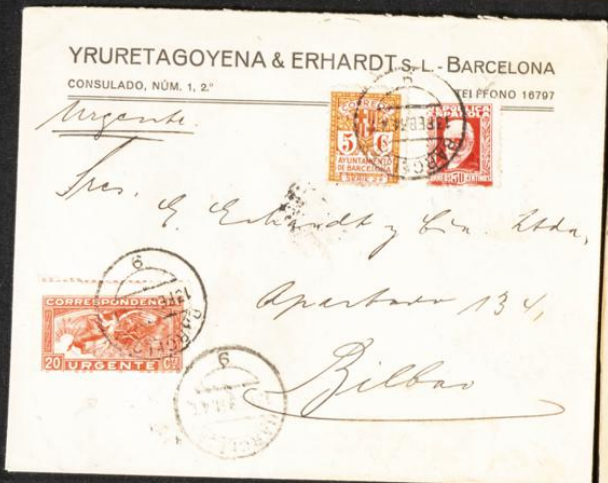 YRURETAGOYENA & ERHARDT S. L. - BARCELONA
CONSULADO, NÚM. 1, 2.º
TELEFONO 16797
Urgente.
CORREOS
5 C
AYUNTAMIENTO
DE BARCELONA
REPUBLICA
ESPAÑOLA
Sres. E. Erhardt y Cia. Ltda,
Apartado 134,
Bilbao
CORRESPONDENCIA
20 URGENTE Cs